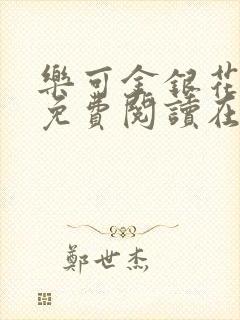 樂可金銀花
免費閱讀在
鄭世杰